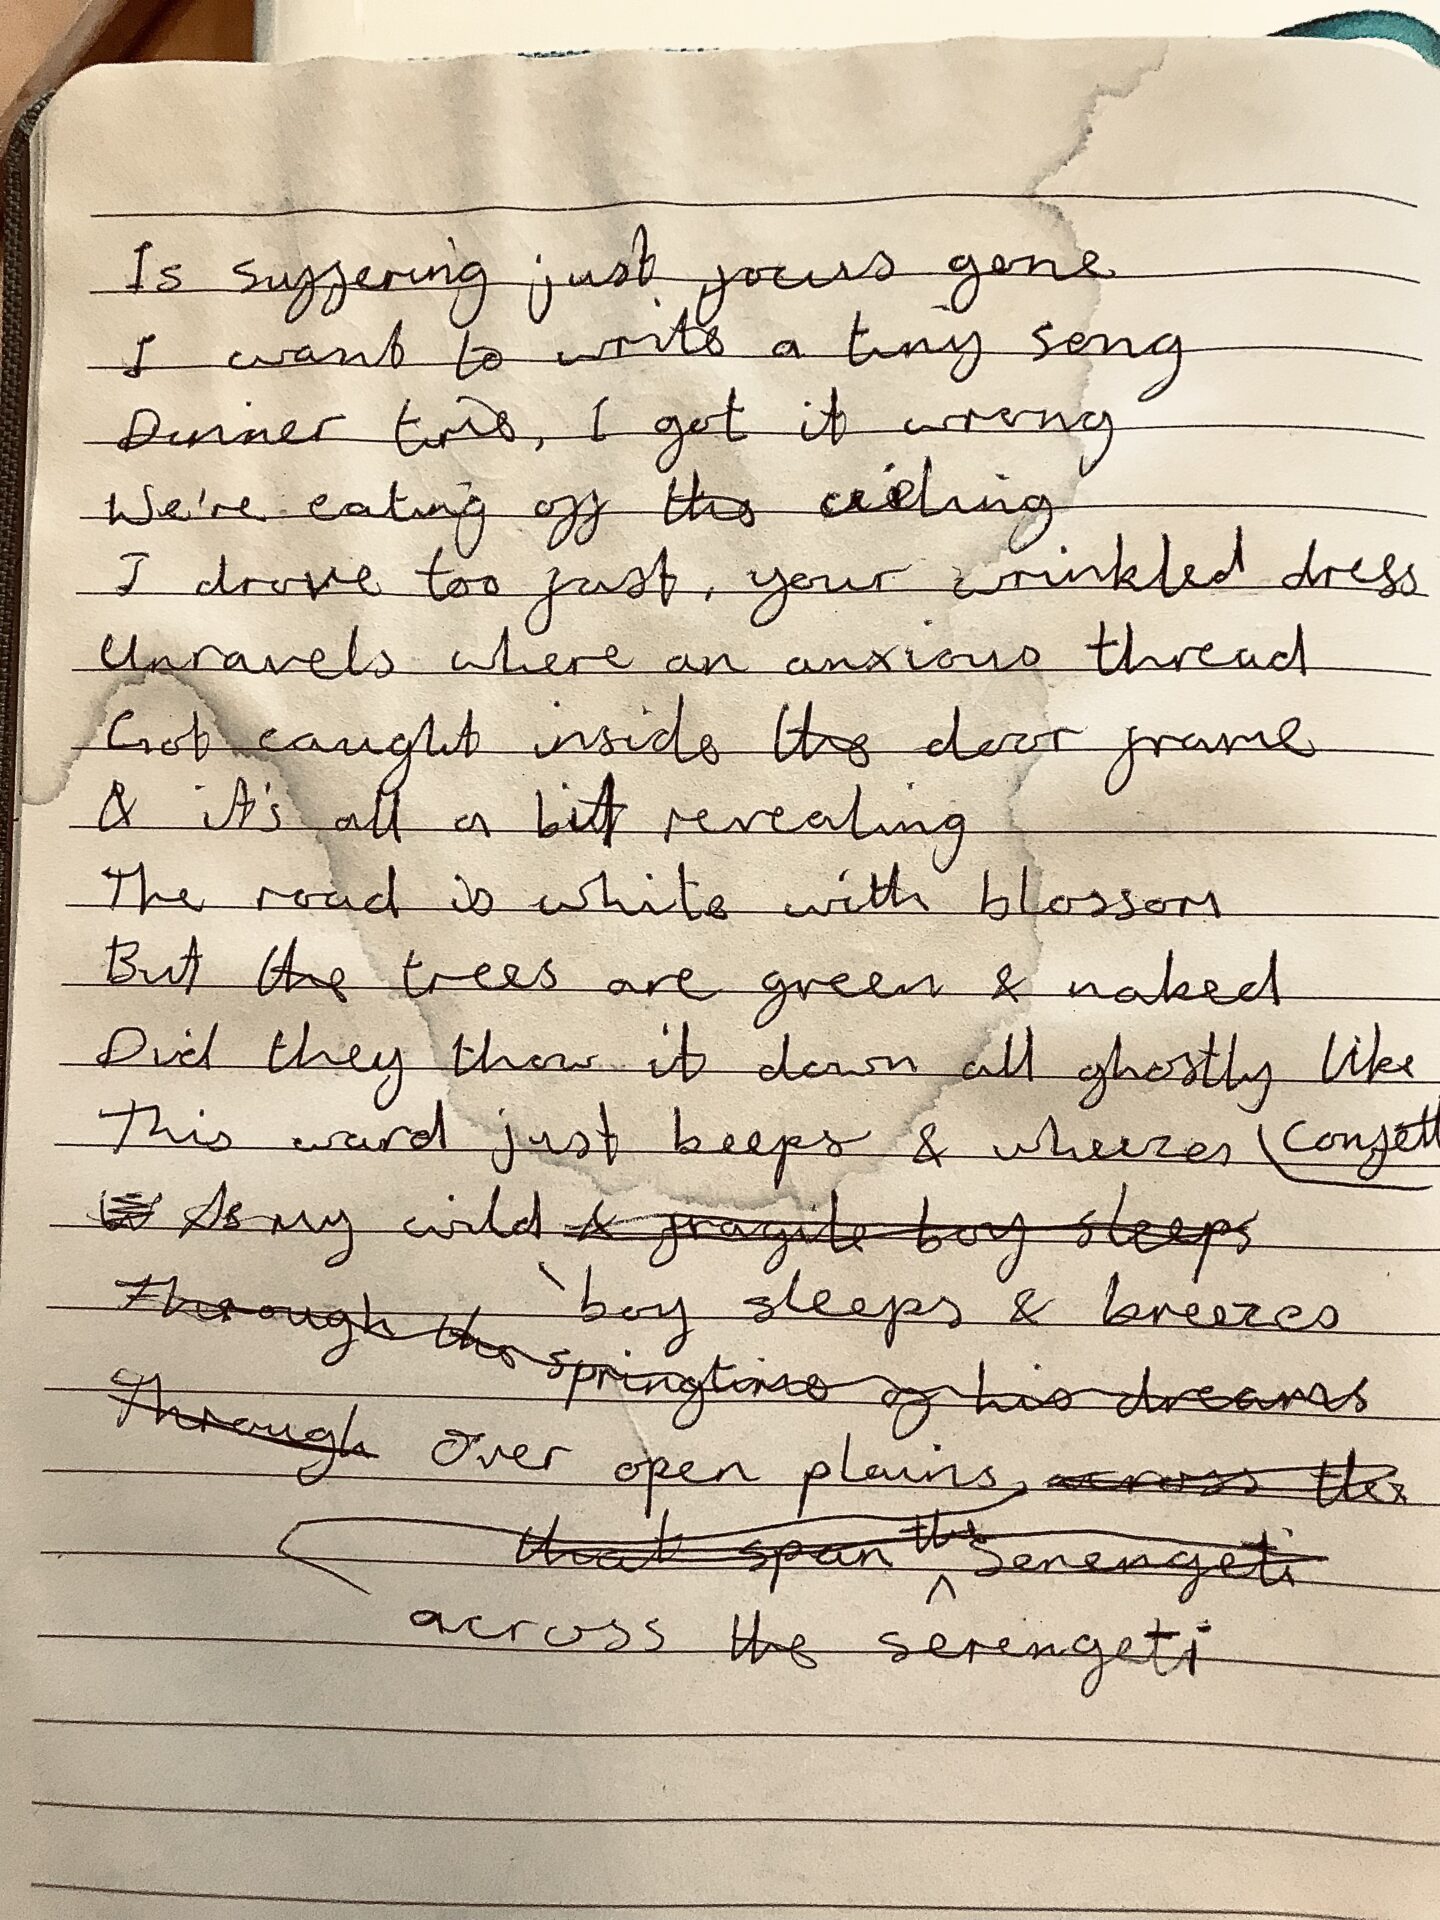 Is suffering just focus gone
I want to write a tiny song
Dinner time, I got it wrong
We're eating off the ceiling
I drove too fast, your wrinkled dress
Unravels where an anxious thread
Got caught inside the door frame
& it's all a bit revealing
The road is white with blossom
But the trees are green & naked
Did they thow it down all ghostly like
This ward just beeps & wheezes (Confett
As my wild & fragile boy sleeps
boy sleeps & breezes
Through the springtime of his dreams
Through Over open plains, across the
that span the Serengeti
across the serengeti